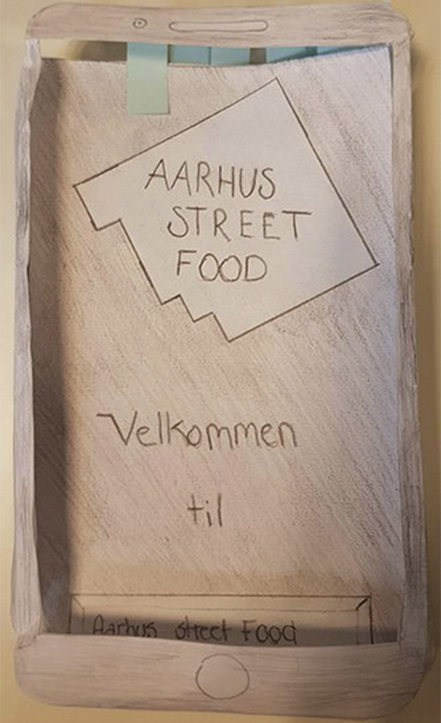 AARHUS
STREET
FOOD
Velkommen
til
Aarhus street Food